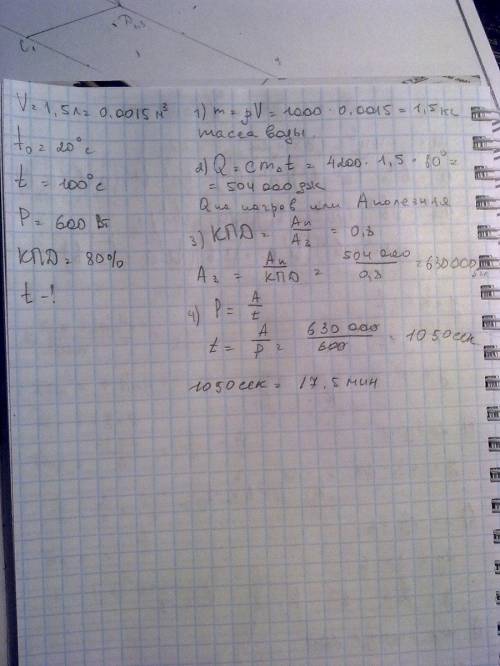 V = 1,5л = 0,0015 м³
t₀ = 20°c
t = 100°c
P = 600 Вт
КПД = 80%
t - ?
1) m = ρV = 1000 · 0,0015 = 1,5 кг
масса воды.
2) Q = c m △ t = 4200 · 1,5 · 80° =
= 504 000 дж
Q на нагрев или A полезная
3) КПД = Aп / Aз = 0,8
Aз = Aп / КПД = 504 000 / 0,8 = 630000 дж
4) P = A / t
t = A / P = 630 000 / 600 = 1050 сек
1050 сек = 17,5 мин